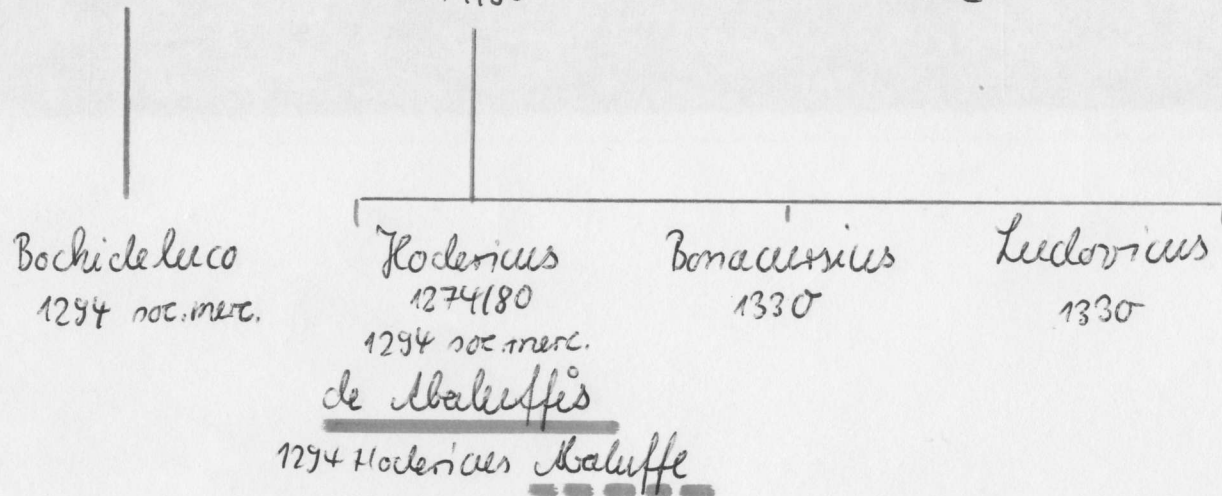 Bochideluco
1294 soc. merc.
Hodericus
1274/80
1294 soc. merc.
de Abaluffis
1294 Hodericus Abaluffe
Bonacursius
1330
Ludovicus
1330